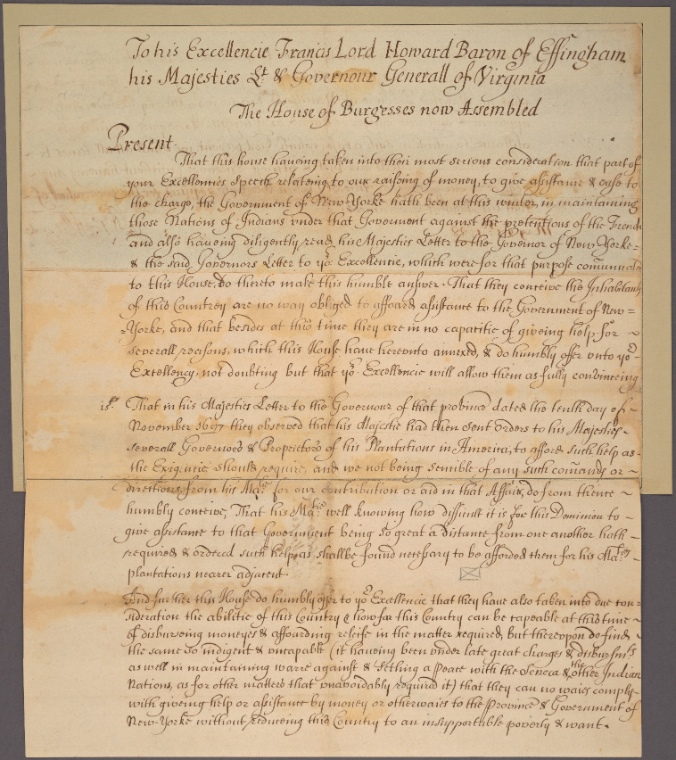 To his Excellencie Francis Lord Howard Baron of Effingham
his Majesties Lt & Governour Generall of Virginia
The House of Burgesses now Assembled
Present
That this house haveing taken into their most serious consideration that part of
your Excellencies speech relateing to our raiseing of money, to give assistance & ease to
the charge, the Government of New Yorke hath been at this winter, in maintaineing
those Nations of Indians under that Government against the pretentions of the French
and also haveing diligently read, his Majesties Letter to the Governor of New Yorke =
& the said Governors Letter to yor Excellencie, which were for that purpose
to this House, do thereto make this humble answer. That they conceive the Inhabitants
of this Countrey are no way obliged to affoard assistance to the Government of New =
= Yorke, and that besides at this time they are in no capacitie of giveing help, for ~
severall reasons, which this House have hereunto annexed, & do humbly offer unto yor
Excellency, not doubting but that yor Excellencie will allow them as fully convinceing
1st That in his Majesties Letter to the Governour of that province dated the tenth day of ~
November 1687 they observed that his Majestie had then sent orders to his Majesties ~
severall Governors & Proprietors of his Plantations in America, to afford such help as ~
the Exigencies should require, and we not being sensible of any such comands or ~
directions from his Matie for our contribution or aid in that Affair, do from thence ~
humbly conceive, That his Matie well knowing how difficult it is for this Dominion to ~
give assistance to that Government being so great a distance from one another hath ~
required & ordered such help as shall be found necessary to be afforded them for his Maties
plantations nearer adjacent.
And further this House do humbly offer to yor Excellencie that they have also taken into due con=
sideration the abilitie of this Country & how far this Country can be capeable at this time ~
of disburseing moneyes & affoarding releife in the matter required, but thereupon do finde ~
the same so indigent & uncapable (it haveing been under late great charges & disbursmts
as well in maintaining warre against & setling a peace with the Seneca & other Indian
Nations, as for other matters that unavoidably required it) that they can no waies comply
with giveing help or assistance by money or otherwaies to the Province & Government of
New Yorke without reduceing this Country to an insupportable poverty & want.